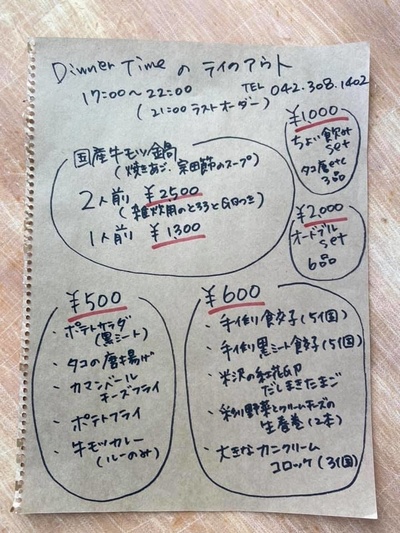 Dinner Time の テイクアウト
17:00〜22:00
TEL 042.308.1402
(21:00 ラストオーダー)
¥1,000
ちょい飲み
set
タコ唐etc
3品
国産牛モツ鍋
(焼きあご、宗田節のスープ)
2人前 ¥2,500
(雑炊用のとろろと
1人前 ¥1300
¥2,000
オードブル
set
6品
¥500
・ポテトサラダ
(黒ミート)
・タコの唐揚げ
・カマンベール
チーズフライ
・ポテトフライ
・牛モツカレー
(ルーのみ)
¥600
・手作り餃子(5個)
・手作り黒ミート餃子(5個)
・米沢の紅花
だしまきたまご
・彩り野菜とクリームチーズの
生春巻(2本)
・大きなカニクリーム
コロッケ(3個)